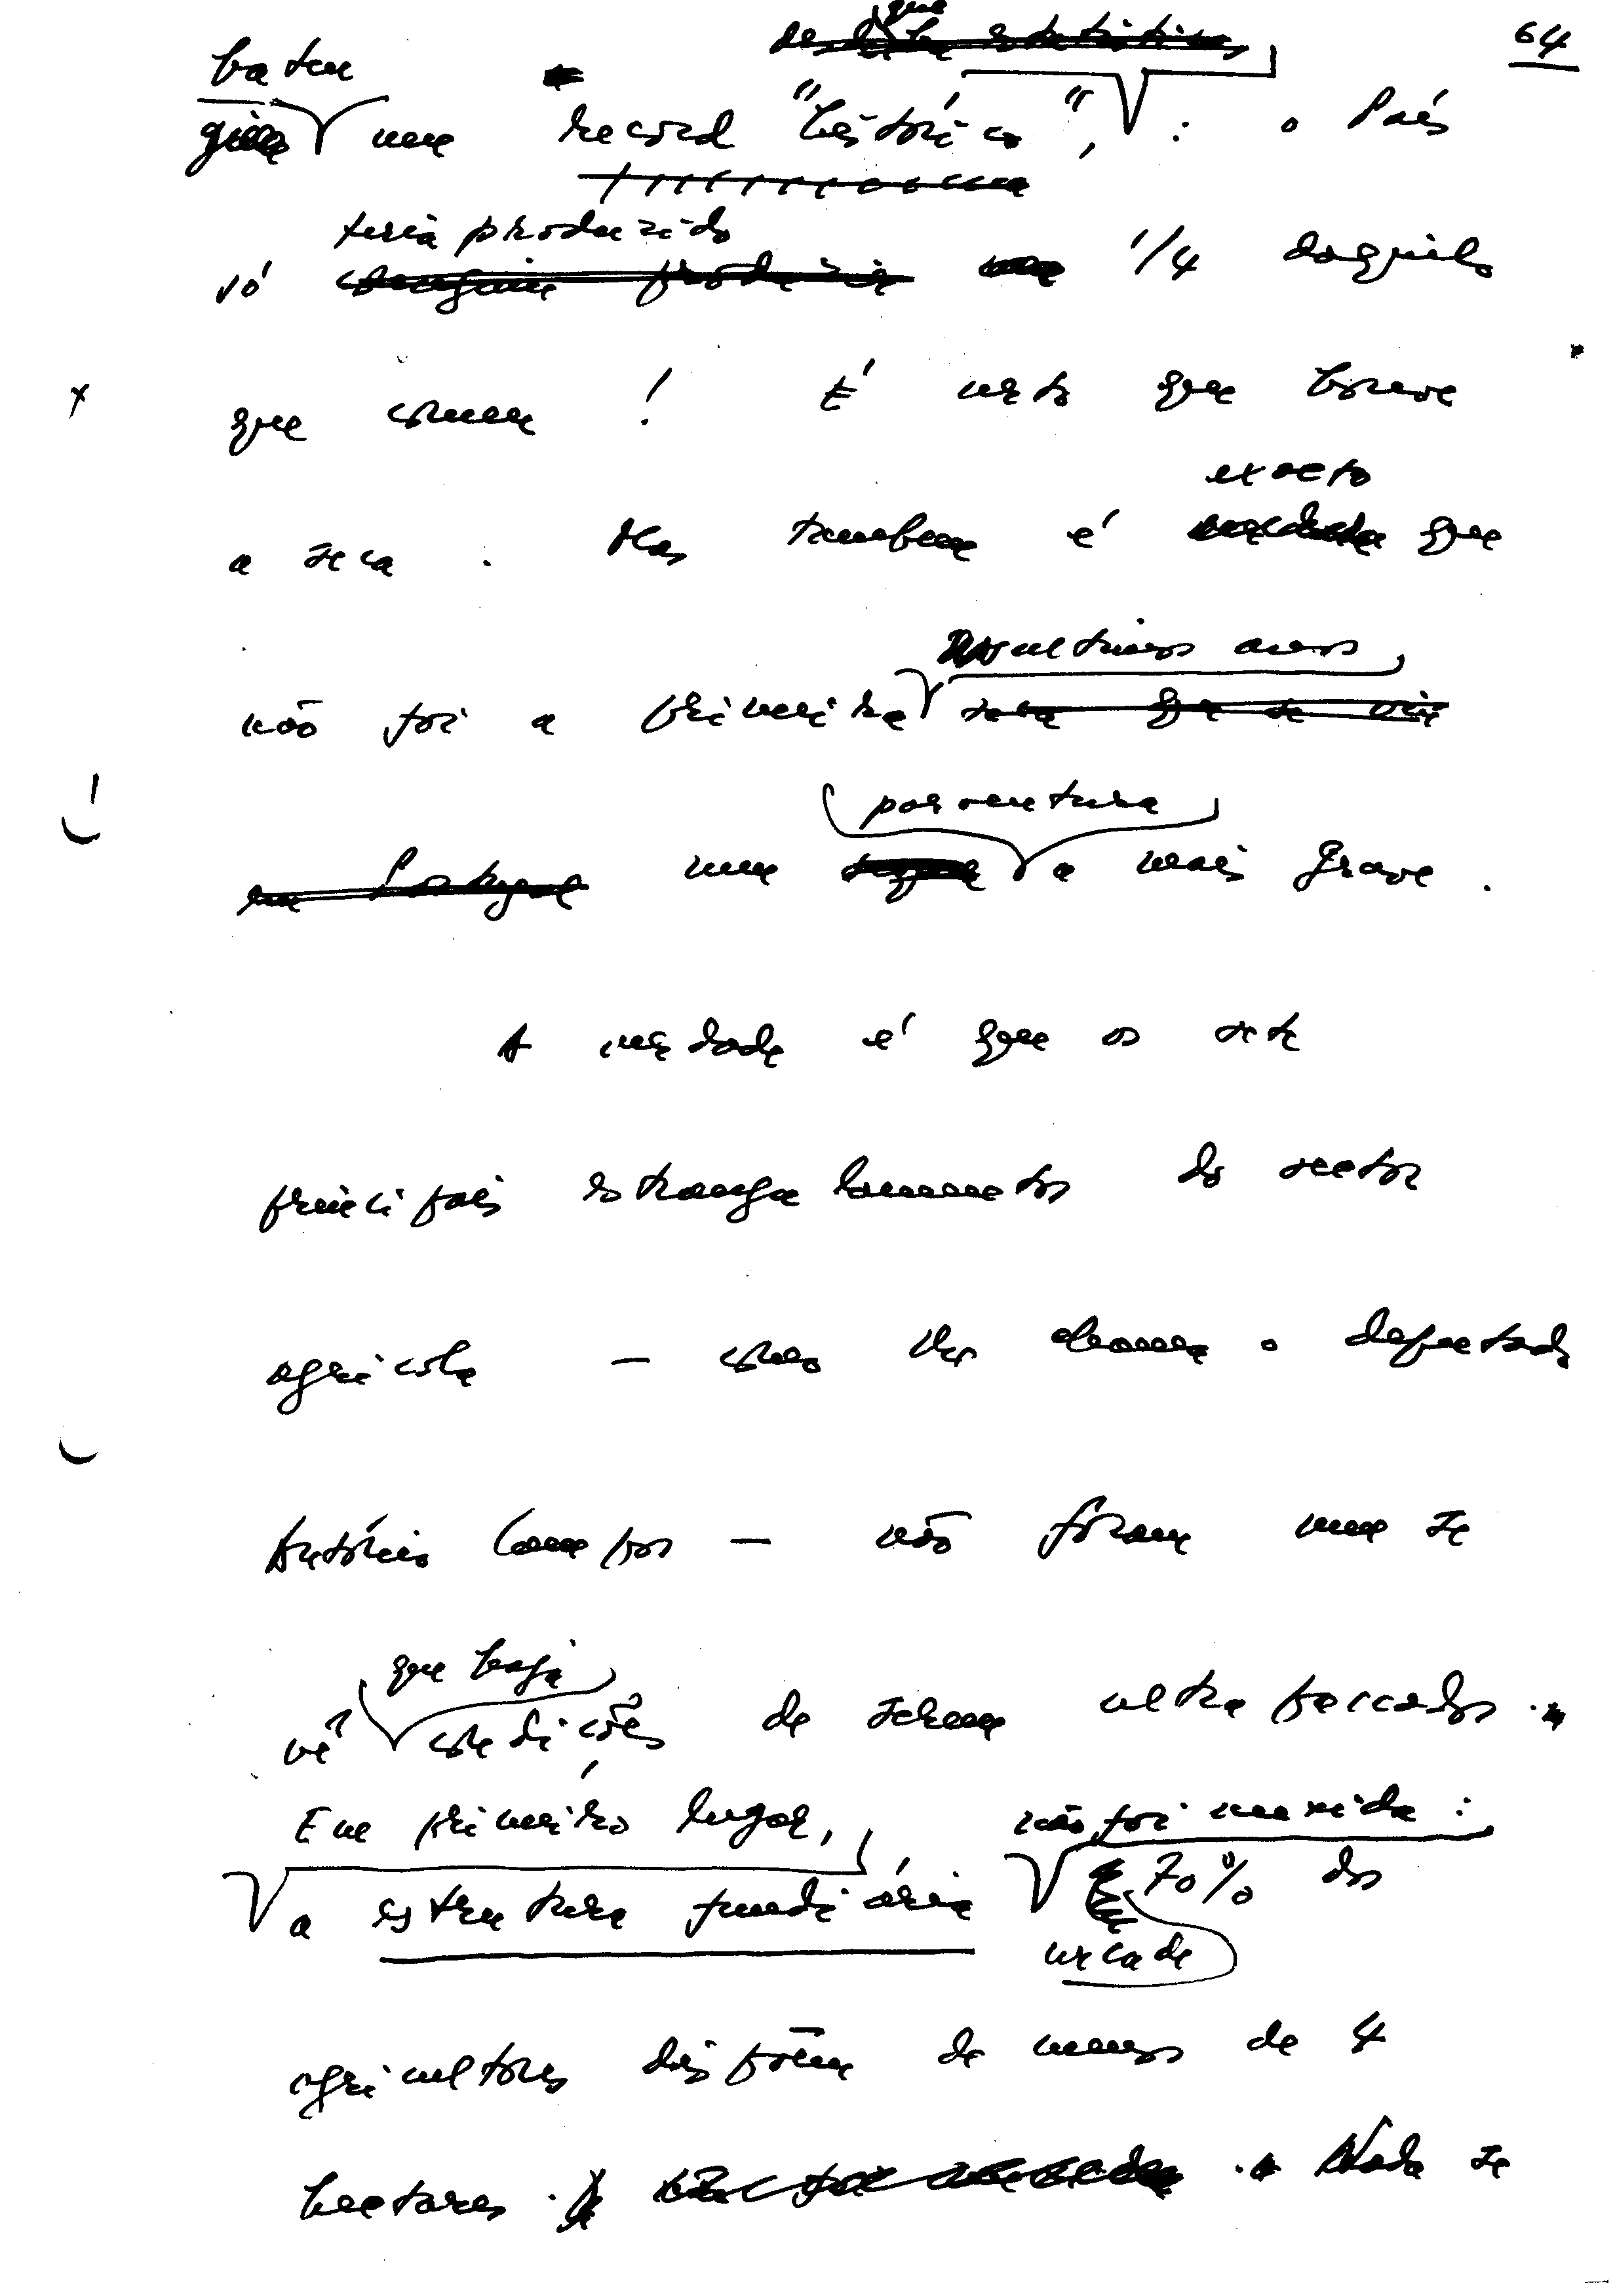 64
bateu
um record "histórico", : o País
teria produzido
só 1/4 daquilo
que come! É certo que houve
exacto
a seca. Mas também é que
nos últimos anos,
não foi a primeira
porventura
nem a mais grave.
A verdade é que os sete
principais estrangulamentos do sector
agrícola — como lhes chama o deputado
António Campos — não foram nem se
que haja
vê condições de serem ultrapassados.
Em primeiro lugar, não foi mexida:
a estrutura fundiária 70% dos
cerca de
agricultores dispõem de menos de 4
hectares. Nada se